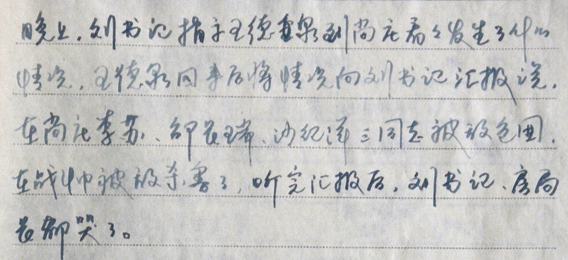 晚上,刘书记指示王德泉到尚庄看看发生了什么
情况,王德泉回来后将情况向刘书记汇报说,
在尚庄李苏、邹长瑞、沙纪泽三同志被敌包围,
在战斗中被敌杀害了,听完汇报后,刘书记、房局
长都哭了。